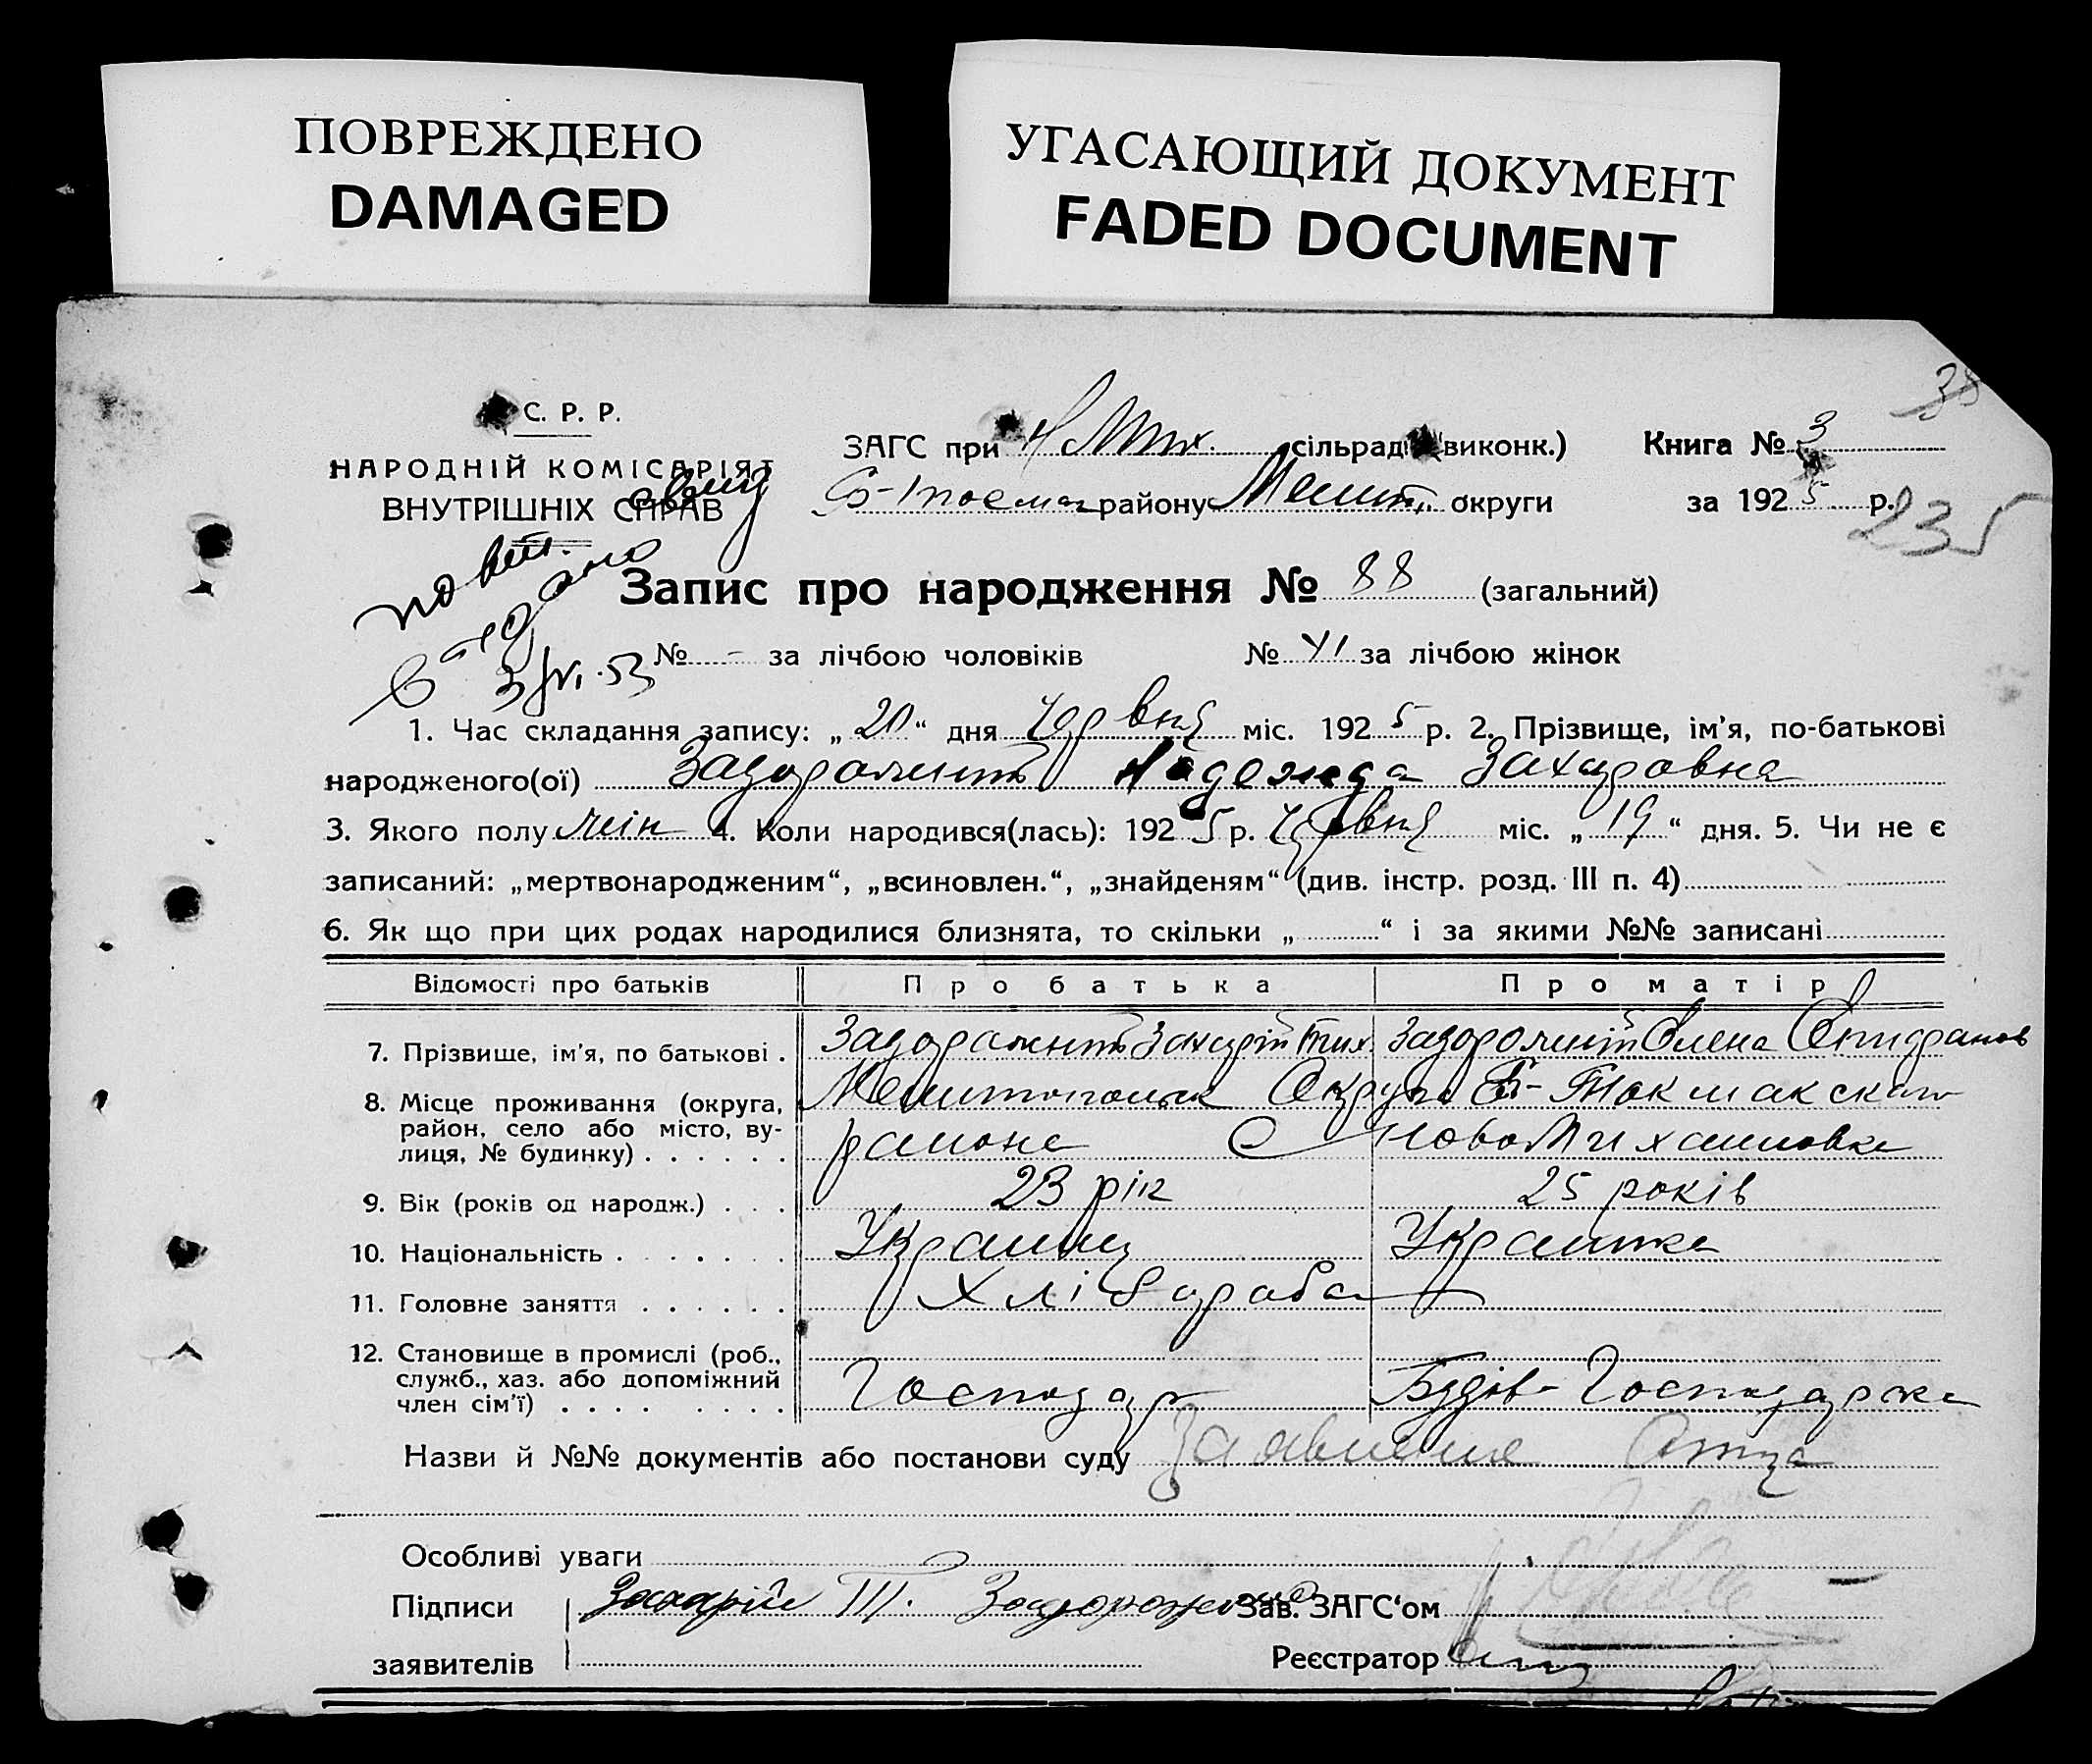 ПОВРЕЖДЕНО
DAMAGED
УГАСАЮЩИЙ ДОКУМЕНТ
FADED DOCUMENT
38
С. Р. Р.
НАРОДНІЙ КОМІСАРІЯТ
ВНУТРІШНІХ СПРАВ
ЗАГС при Н Мих. сільрад виконк.)
Книга № 3
району Мелит. округи
за 1925 р.
235
повт. свид
3/VI.53
Запис про народження № 88 (загальний)
№ - за лічбою чоловіків № 41 за лічбою жінок
1. Час складання запису: „20“ дня червня міс. 1925 р. 2. Прізвище, ім'я, по-батькові
народженого(ої) Задорожній Надежда Захаровна
3. Якого полу жін 4. Коли народився(лась): 1925 р. червня міс. „19“ дня. 5. Чи не є
записаний: „мертвонародженим“, „всиновлен.“, „знайденям“ (див. інстр. розд. III п. 4)
6. Як що при цих родах народилися близнята, то скільки „ “ і за якими №№ записані
Відомості про батьків Про батька Про матір
7. Прізвище, ім'я, по батькові . Задорожній Захарій Тих. Задорожній Олена
8. Місце проживання (округа, Мелитопольск Округи Б-Токмакского
район, село або місто, ву- района С Ново Михаиловка
лиця, № будинку) . . . . . .
9. Вік (років од народж.) . . . 23 рік 25 років
10. Національність . . . . . . Украинец Украинка
11. Головне заняття . . . . . . Хлібороба
12. Становище в промислі (роб.,
служб., хаз. або допоміжний
член сім'ї) . . . . . . . . Господар Господарка
Назви й №№ документів або постанови суду Заявление Отца
Особливі уваги
Підписи Захарій Т. Задорожній Зав. ЗАГС'ом
заявителів Реєстратор